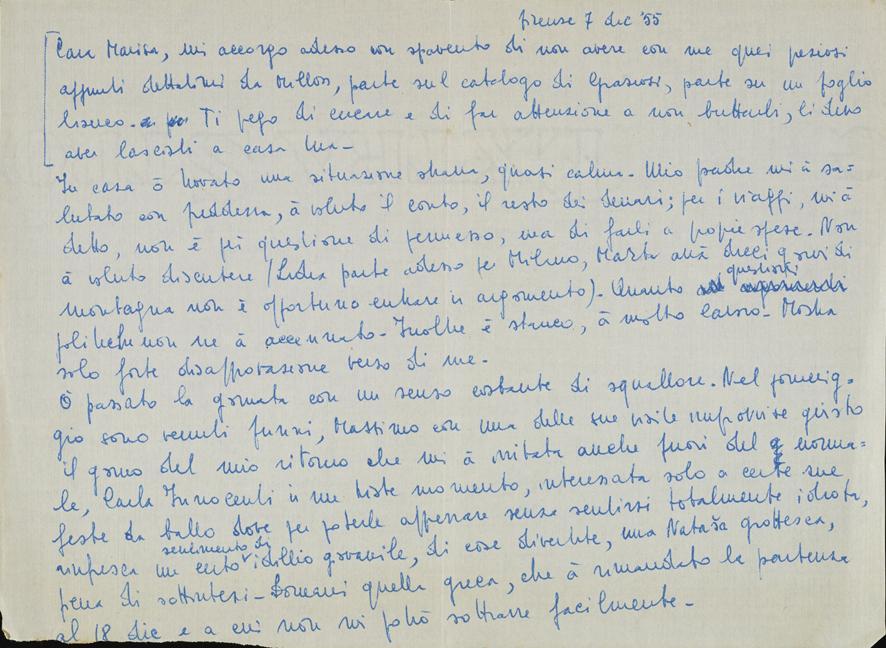 firenze 7 dic '55
Cara Marisa, mi accorgo adesso con spavento di non avere con me quei preziosi
appunti dettatimi da Millos, parte sul catalogo di Graziosi, parte su un foglio
bianco. Ti prego di cercare e di far attenzione a non buttarli, li devo
aver lasciati a casa tua -
In casa ò trovato una situazione strana, quasi calma. Mio padre mi à sa=
lutato con freddezza, à voluto il conto, il resto dei denari; per i viaggi, mi à
detto, non è più questione di permesso, ma di farli a proprie spese. Non
à voluto discutere (Lidea parte adesso per Milano, Marta avrà dieci giorni di
montagna non è opportuno entrare in argomento). Quanto questioni
politiche non ne à accennato - Inoltre è stanco, à molto lavoro - Mostra
solo forte disapprovazione verso di me -
Ò passato la giornata con un senso costante di squallore. Nel pomerig-
gio sono venuti Massimo con una delle sue visite improvvise giusto
il giorno del mio ritorno che mi à irritata anche fuori del norma=
le, Carla Innocenti in un triste momento, interessata solo a certe sue
feste da ballo dove per poterle apprezzare senza sentirsi totalmente idiota,
un certo sentimento di idillio giovanile, di cose divertite, una Nataša grottesca,
piena di sottintesi - Domani quella greca, che à rimandato la partenza
al 18 dic e a cui non mi potrò sottrarre facilmente -